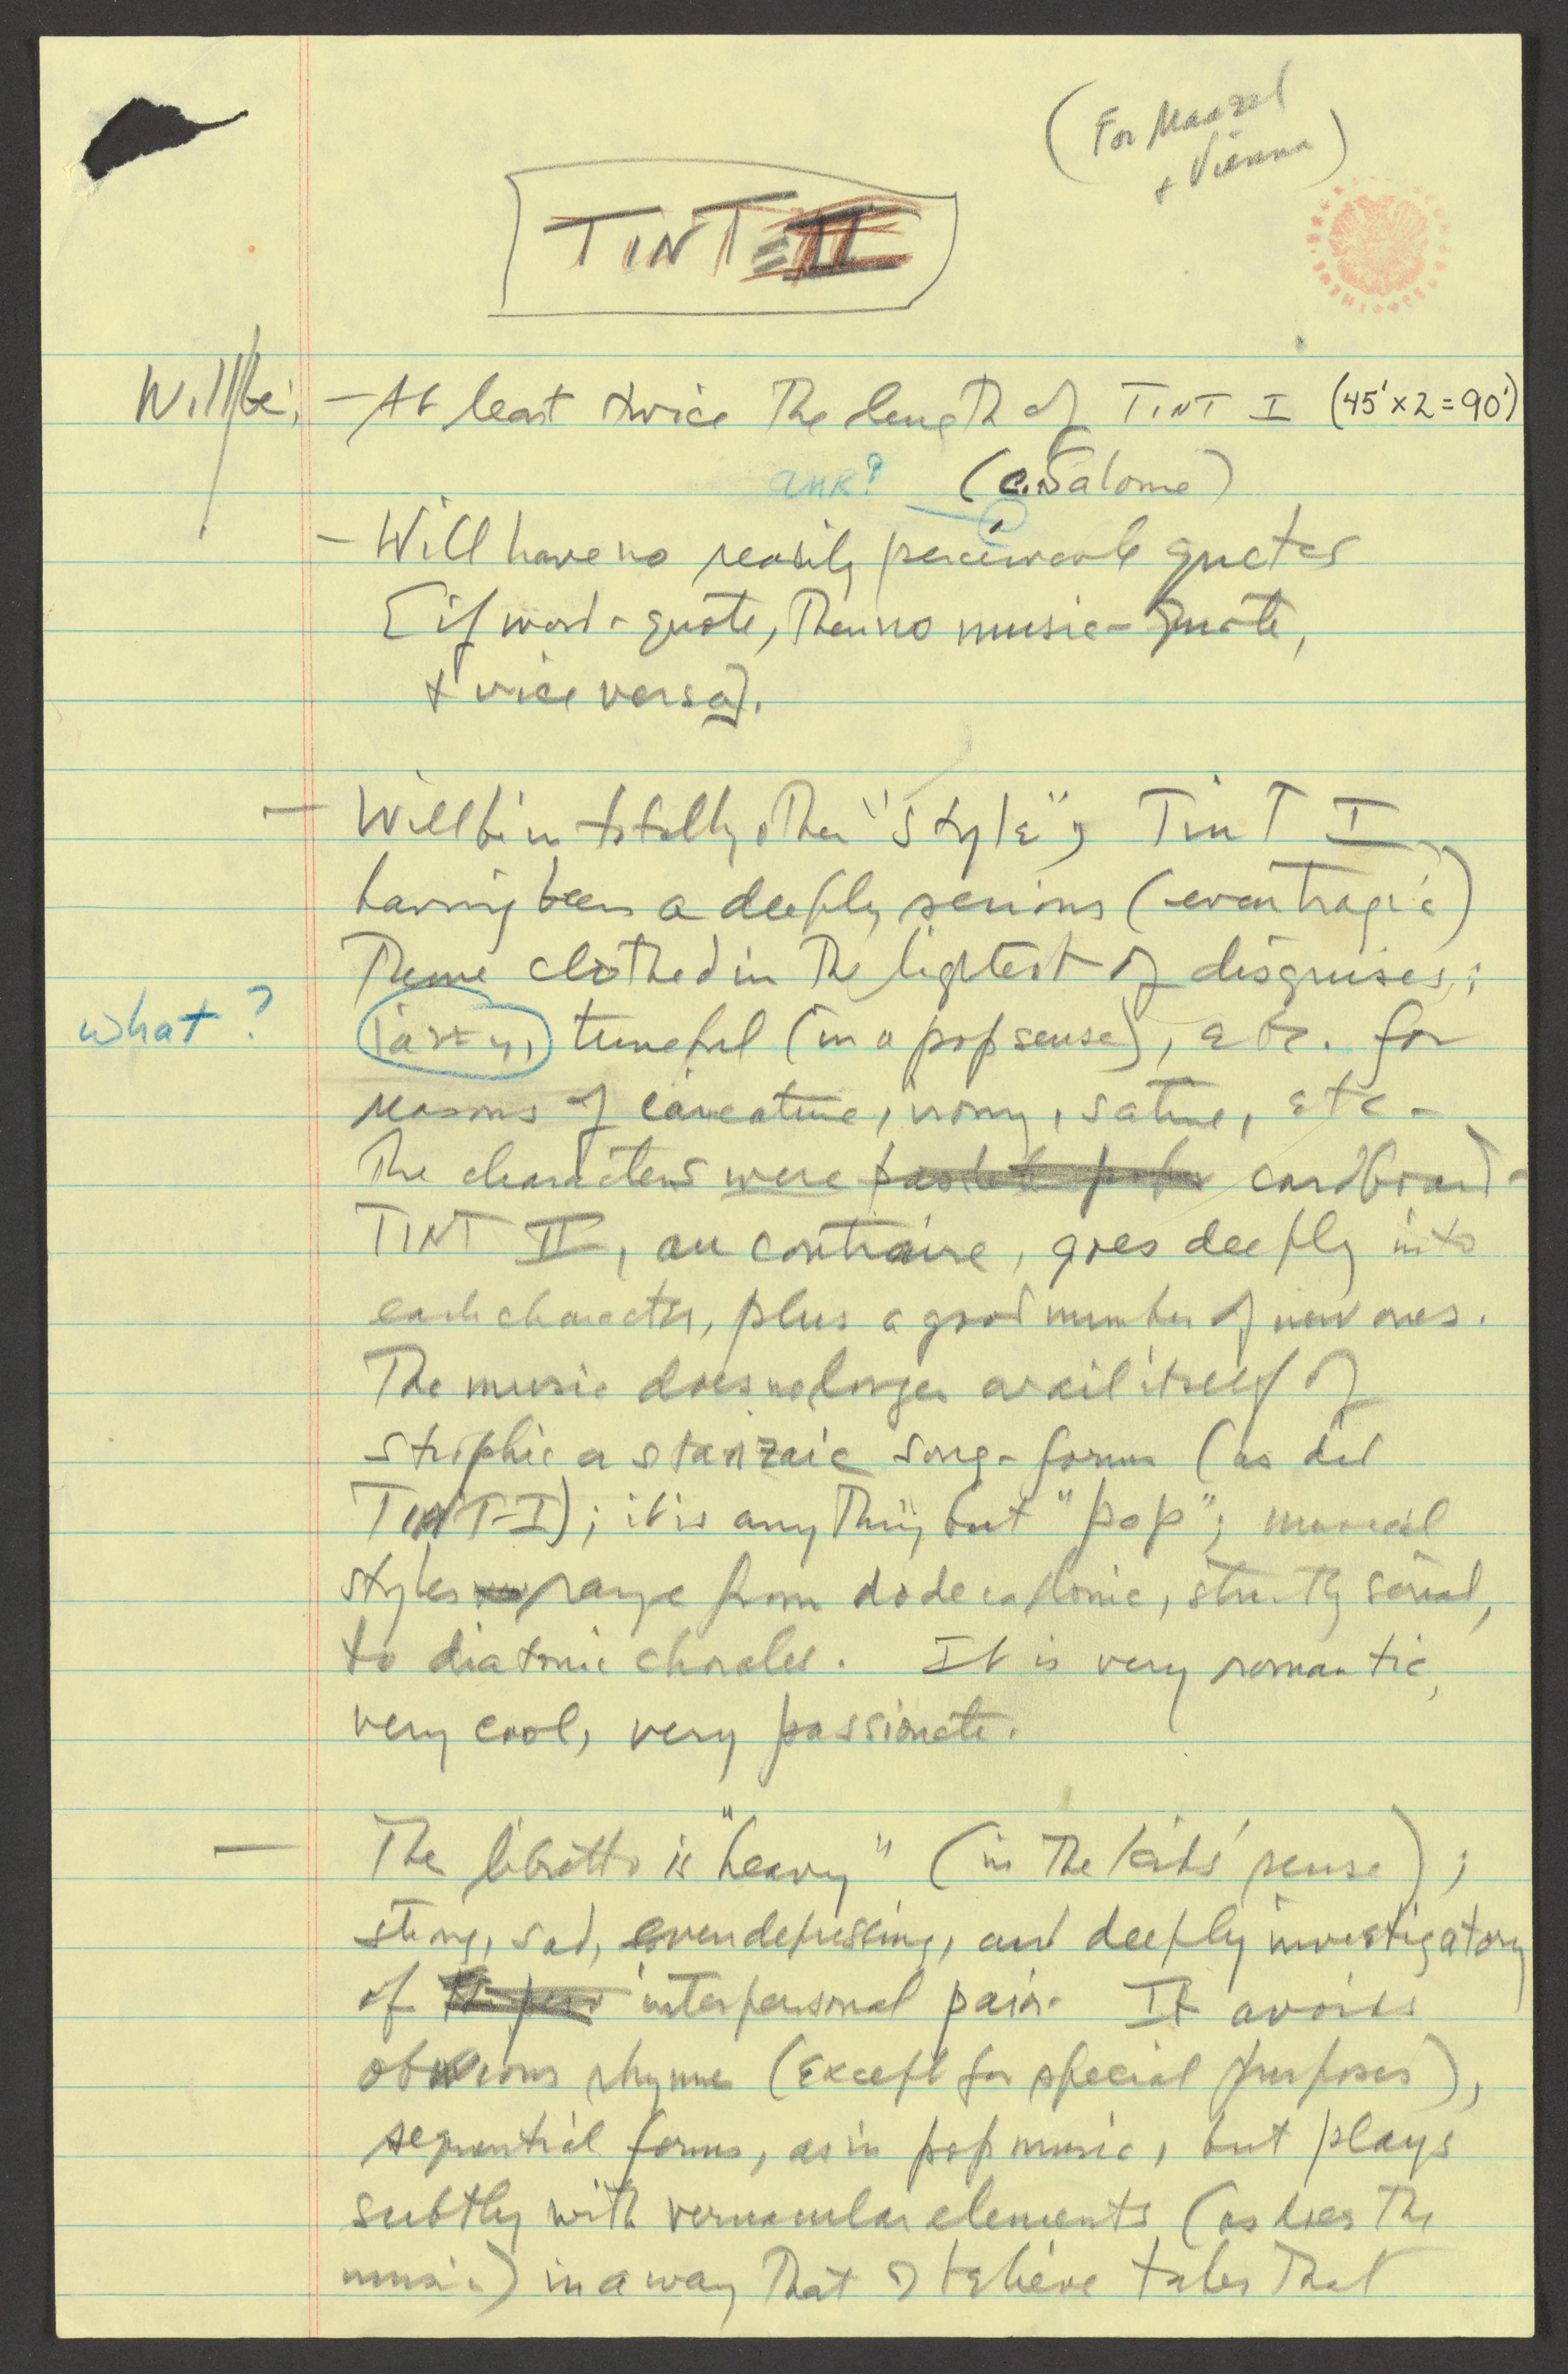 (For Maazel
+ Vienna)
TINT II
Will be: – At least twice the length of TINT I (45' x 2 = 90')
ank? (c. Salome)
– Will have no readily perceivable quotes
[if word-quote, then no music-quote,
+ vice versa].
– Will be in totally other "style", TINT I
having been a deeply serious (even tragic)
theme clothed in the lightest of disguises:
what? jazzy, tuneful (in a pop sense), etc. for
reasons of caricature, irony, satire, etc –
The characters were cardboard –
TINT II, au contraire, goes deeply into
each character, plus a good number of new ones.
The music does no longer avail itself of
strophic or stanzaic song-forms (as did
TINT-I); it is anything but "pop"; musical
styles range from dodecaphonic, strictly serial,
to diatonic chorales. It is very romantic,
very cool, very passionate.
– The libretto is "heavy" (in the kids' sense);
strong, sad, even depressing, and deeply investigatory
of interpersonal pain. It avoids
obvious rhyme (except for special purposes),
sequential forms, as in pop music, but plays
subtly with vernacular elements (as does the
music) in a way that I believe takes that